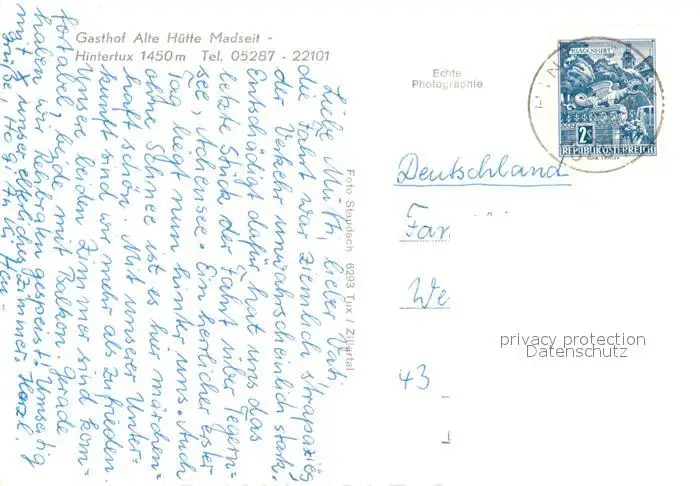 Gasthof Alte Hütte Madseit -
Hintertux 1450m Tel. 05287 - 22101
Echte
Photographie
KLAGENFURT
2S
REPUBLIK ÖSTERREICH
Foto Staudach 6293 Tux / Zillertal
Liebe Mutti, lieber Vati,
die Fahrt war ziemlich strapaziös
der Verkehr unwahrscheinlich stark.
Entschädigt dafür hat uns das
letzte Stück der Fahrt über Tegern=
see, Achensee. Ein herrlicher erster
Tag liegt nun hinter uns. Auch
ohne Schnee ist es hier märchen=
haft schön. Mit unserer Unter=
kunft sind wir mehr als zufrieden.
Unsere beiden Zimmer sind kom=
fortabel, beide mit Balkon. Gerade
haben wir Rehbraten gespeist. Umseitig
mit X unser elterliches Zimmer. Herzl.
Grüße,
Deutschland
Fam
We
43
privacy protection
Datenschutz